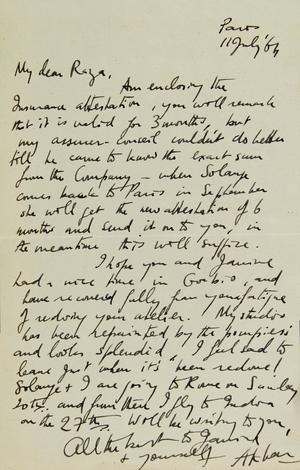 Paris
11 July '64
My dear Raza,
Am enclosing the
Insurance attestation, you will remark
that it is valid for 3 months, but
my assurer-conseil couldn't do better
till he came to know the exact sum
from the Company – when Solange
comes back to Paris in September
she will get the new attestation of 6
months and send it on to you, in
the meantime this will suffice.
I hope you and Janine
had a nice time in Gorbio, and
have recovered fully from your fatigue
of redoing your atelier. My studio
has been repainted by the pompiers
and looks splendid, I feel sad to
leave just when it's been redone!
Solange & I are going to Rome on Sunday
and from there I fly to India
on the 27th. Will be writing to you,
All the best to Janine
& yourself Akbar